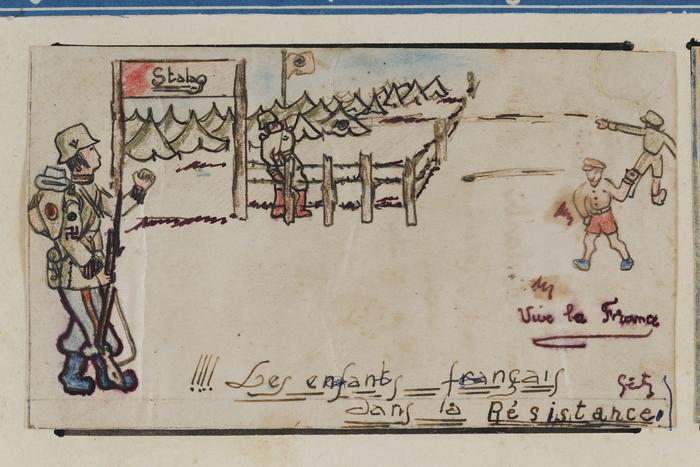 Stalag
Vive la France
!!!! Les enfants français
dans la Résistance.